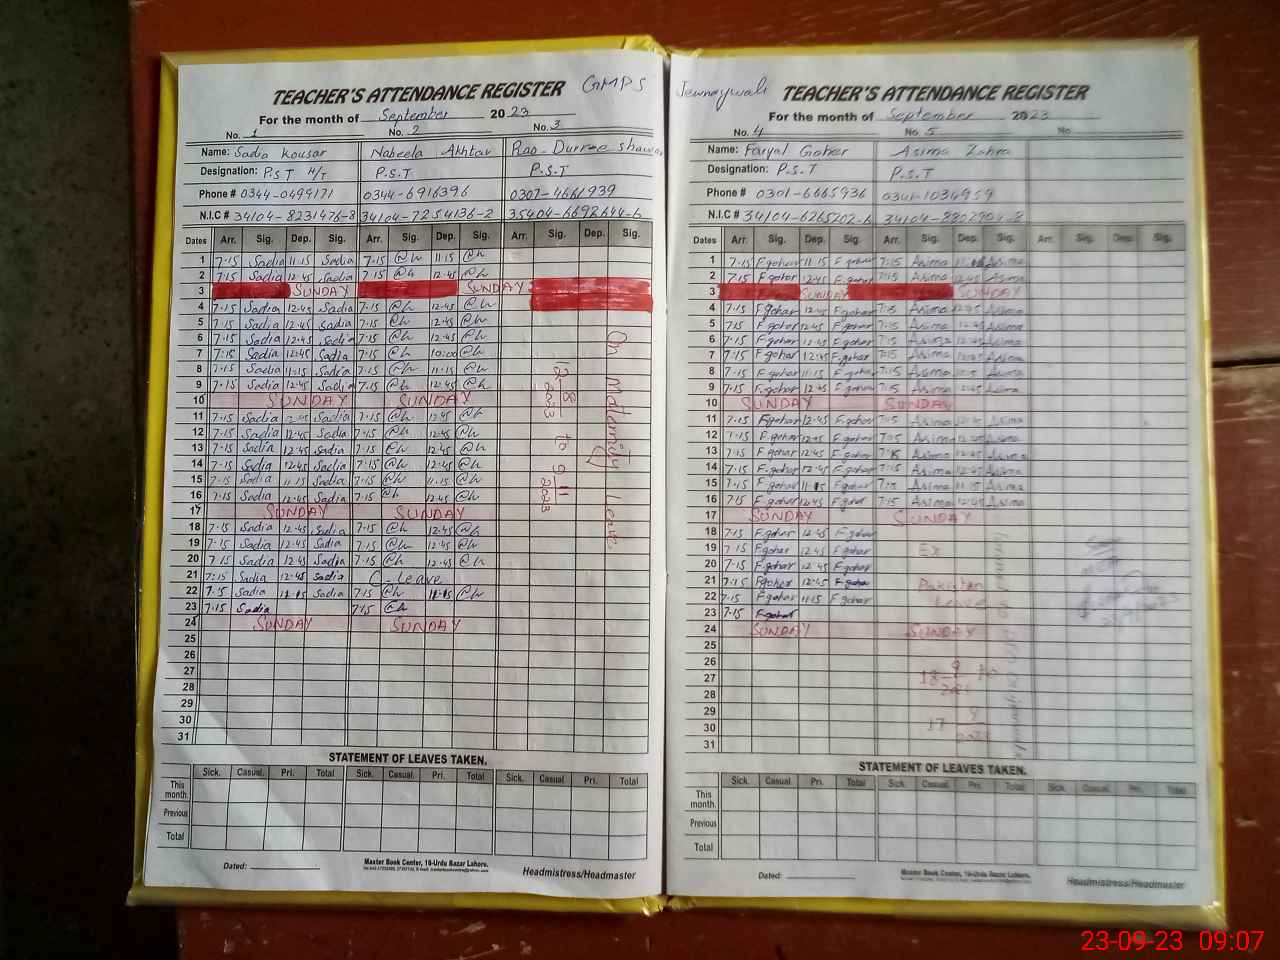 TEACHER'S ATTENDANCE REGISTER GMPS
For the month of September 2023
No. 1 No. 2 No. 3
Name: Sadia Kousar Nabeela Akhtar Rao-Durree Shawar
Designation: P.S.T H/T P.S.T P.S.T
Phone # 0344-0499171 0344-6916396 0307-4661939
N.I.C # 34104-8231476-8 34104-7254136-2 35404-6698644-6
Dates Arr. Sig. Dep. Sig. Arr. Sig. Dep. Sig. Arr. Sig. Dep. Sig.
1 7-15 Sadia 11-15 Sadia 7-15 @h 11-15 @h
2 7-15 Sadia 12-45 Sadia 7-15 @h 12-45 @h
3 SUNDAY SUNDAY
4 7-15 Sadia 12-45 Sadia 7-15 @h 12-45 @h
5 7-15 Sadia 12-45 Sadia 7-15 @h 12-45 @h
6 7-15 Sadia 12-45 Sadia 7-15 @h 12-45 @h
7 7-15 Sadia 12-45 Sadia 7-15 @h 10:00 @h
8 7-15 Sadia 11-15 Sadia 7-15 @h 11-15 @h
9 7-15 Sadia 12-45 Sadia 7-15 @h 12-45 @h
10 SUNDAY SUNDAY
11 7-15 Sadia 12-45 Sadia 7-15 @h 12-45 @h
12 7-15 Sadia 12-45 Sadia 7-15 @h 12-45 @h
13 7-15 Sadia 12-45 Sadia 7-15 @h 12-45 @h
14 7-15 Sadia 12-45 Sadia 7-15 @h 12-45 @h
15 7-15 Sadia 11-15 Sadia 7-15 @h 11-15 @h
16 7-15 Sadia 12-45 Sadia 7-15 @h 12-45 @h
17 SUNDAY SUNDAY
18 7-15 Sadia 12-45 Sadia 7-15 @h 12-45 @h
19 7-15 Sadia 12-45 Sadia 7-15 @h 12-45 @h
20 7-15 Sadia 12-45 Sadia 7-15 @h 12-45 @h
21 7-15 Sadia 12-45 Sadia C-Leave
22 7-15 Sadia 11-15 Sadia 7-15 @h 11-15 @h
23 7-15 Sadia 7-15 @h
24 SUNDAY SUNDAY
25
26
27
28
29
30
31
On Maternity Leave
12-8-2023 to 9-11-2023
STATEMENT OF LEAVES TAKEN.
Sick. Casual. Pri. Total Sick. Casual. Pri. Total Sick. Casual. Pri. Total
This month.
Previous
Total
Dated:
Master Book Center, 16-Urdu Bazar Lahore.
Headmistress/Headmaster
Jewnaywali TEACHER'S ATTENDANCE REGISTER
For the month of September 2023
No. 4 No. 5 No.
Name: Faryal Gohar Asima Zahra
Designation: P.S.T P.S.T
Phone # 0301-6665936 0341-1034959
N.I.C # 34104-6265202-6 34104-8802904-8
Dates Arr. Sig. Dep. Sig. Arr. Sig. Dep. Sig. Arr. Sig. Dep. Sig.
1 7-15 F.gohar 11-15 F.gohar 7:15 Asima 11-15 Asima
2 7-15 F.gohar 12-45 F.gohar 7:15 Asima 12-45 Asima
3 SUNDAY SUNDAY
4 7-15 F.gohar 12-45 F.gohar 7:15 Asima 12-45 Asima
5 7-15 F.gohar 12-45 F.gohar 7:15 Asima 12-45 Asima
6 7-15 F.gohar 12-45 F.gohar 7:15 Asima 12-45 Asima
7 7-15 F.gohar 12-45 F.gohar 7:15 Asima 12-45 Asima
8 7-15 F.gohar 11-15 F.gohar 7:15 Asima 11-15 Asima
9 7-15 F.gohar 12-45 F.gohar 7:15 Asima 12-45 Asima
10 SUNDAY SUNDAY
11 7-15 F.gohar 12-45 F.gohar 7:15 Asima 12-45 Asima
12 7-15 F.gohar 12-45 F.gohar 7:15 Asima 12-45 Asima
13 7-15 F.gohar 12-45 F.gohar 7:15 Asima 12-45 Asima
14 7-15 F.gohar 12-45 F.gohar 7:15 Asima 12-45 Asima
15 7-15 F.gohar 11-15 F.gohar 7:15 Asima 11-15 Asima
16 7-15 F.gohar 12-45 F.gohar 7:15 Asima 12-45 Asima
17 SUNDAY SUNDAY
18 7-15 F.gohar 12-45 F.gohar
19 7-15 F.gohar 12-45 F.gohar Ex
20 7-15 F.gohar 12-45 F.gohar
21 7-15 F.gohar 12-45 F.gohar Pakistan
22 7-15 F.gohar 11-15 F.gohar Leave
23 7-15 F.gohar
24 SUNDAY SUNDAY
25
26
27 18-9 to
28
29
30 17
31
STATEMENT OF LEAVES TAKEN.
Sick. Casual. Pri. Total Sick. Casual. Pri. Total Sick. Casual. Pri. Total
This month.
Previous
Total
Dated:
Master Book Center, 16-Urdu Bazar Lahore.
Headmistress/Headmaster
23-09-23 09:07